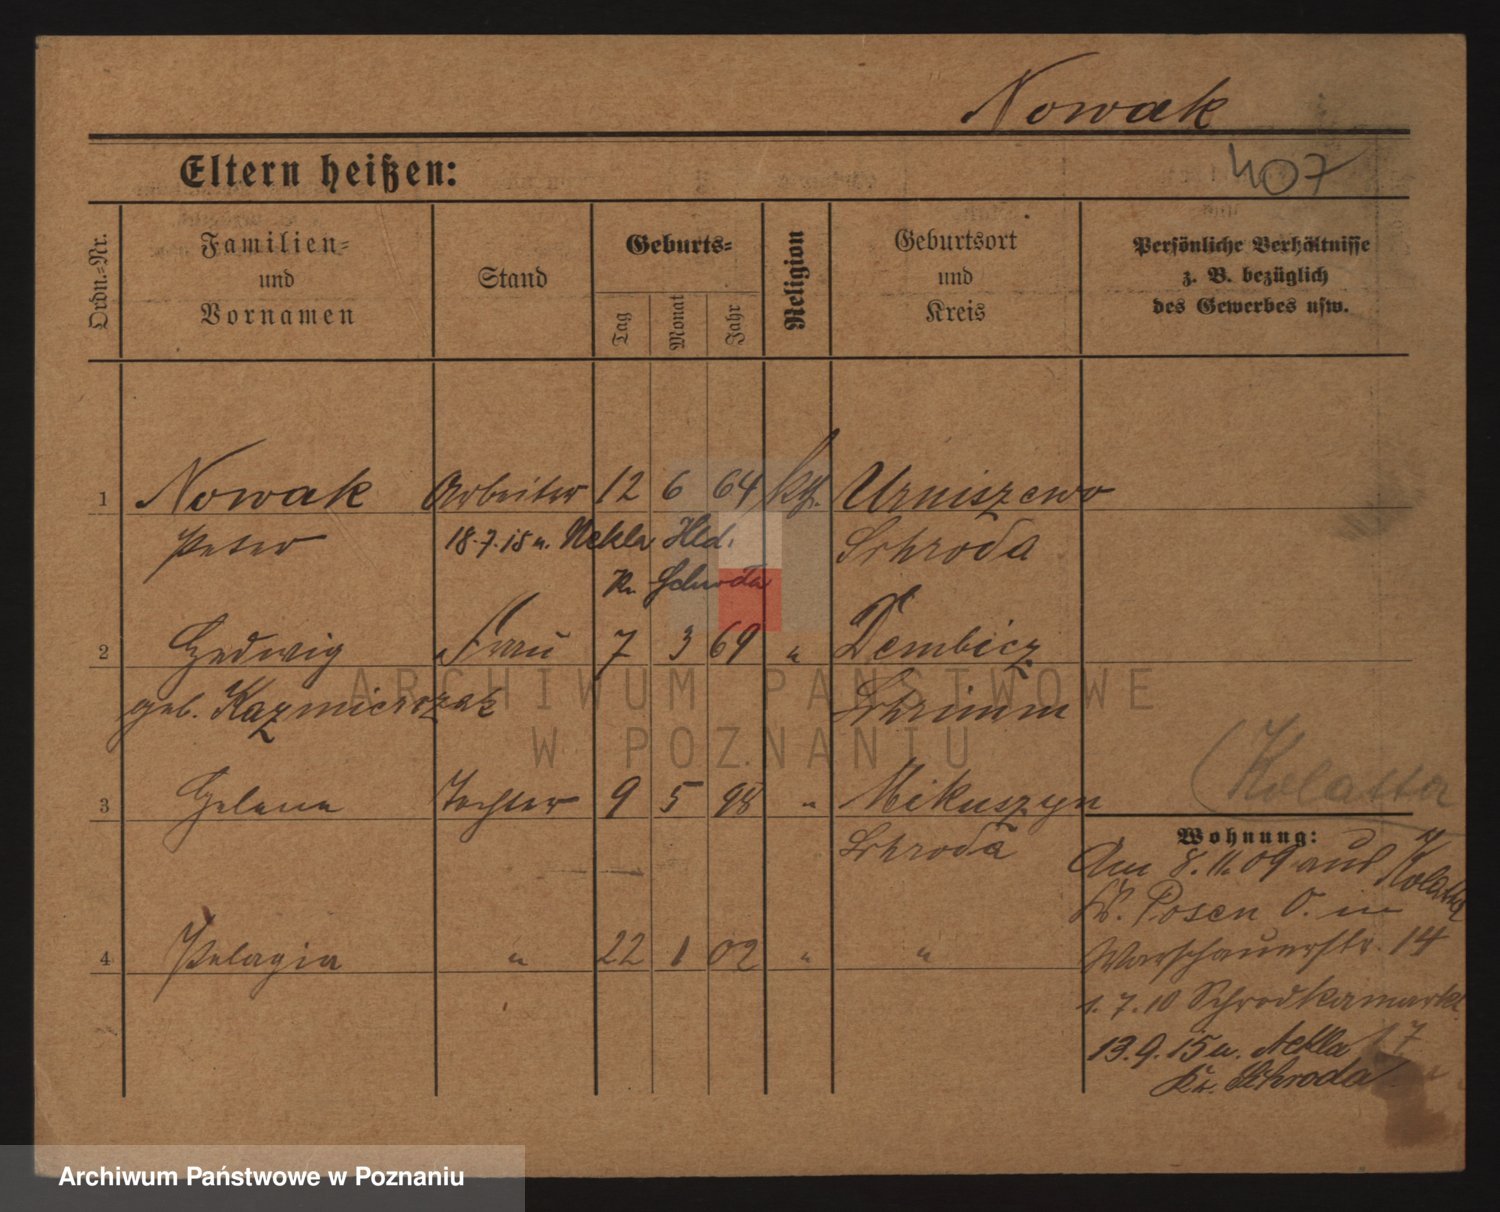 Nowak
407
Eltern heißen:
Ordn.-Nr.
Familien-
und
Vornamen
Stand
Geburts-
Tag
Monat
Jahr
Religion
Geburtsort
und
Kreis
Persönliche Verhältnisse
z. B. bezüglich
des Gewerbes usw.
1 Nowak Arbeiter 12 6 64 kth. Urniszewo
Peter 18.7.15 n. Nekla Hld. Schroda
Kr. Schroda
2 Hedwig Frau 7 3 69 " Dembicz
geb. Kazmierczak Schrimm
3 Helena Tochter 9 5 98 " Mikuszyn
Schroda
(Kolatta
4 Pelagia " 22 1 02 " "
Wohnung:
Am 8.11.09 aus Kolatta
Kr. Posen O. in
Warschauerstr. 14
1.7.10 Schrodkamarkt
17
13.9.15 n. Nekla
Kr. Schroda
ARCHIWUM PAŃSTWOWE
W POZNANIU
Archiwum Państwowe w Poznaniu